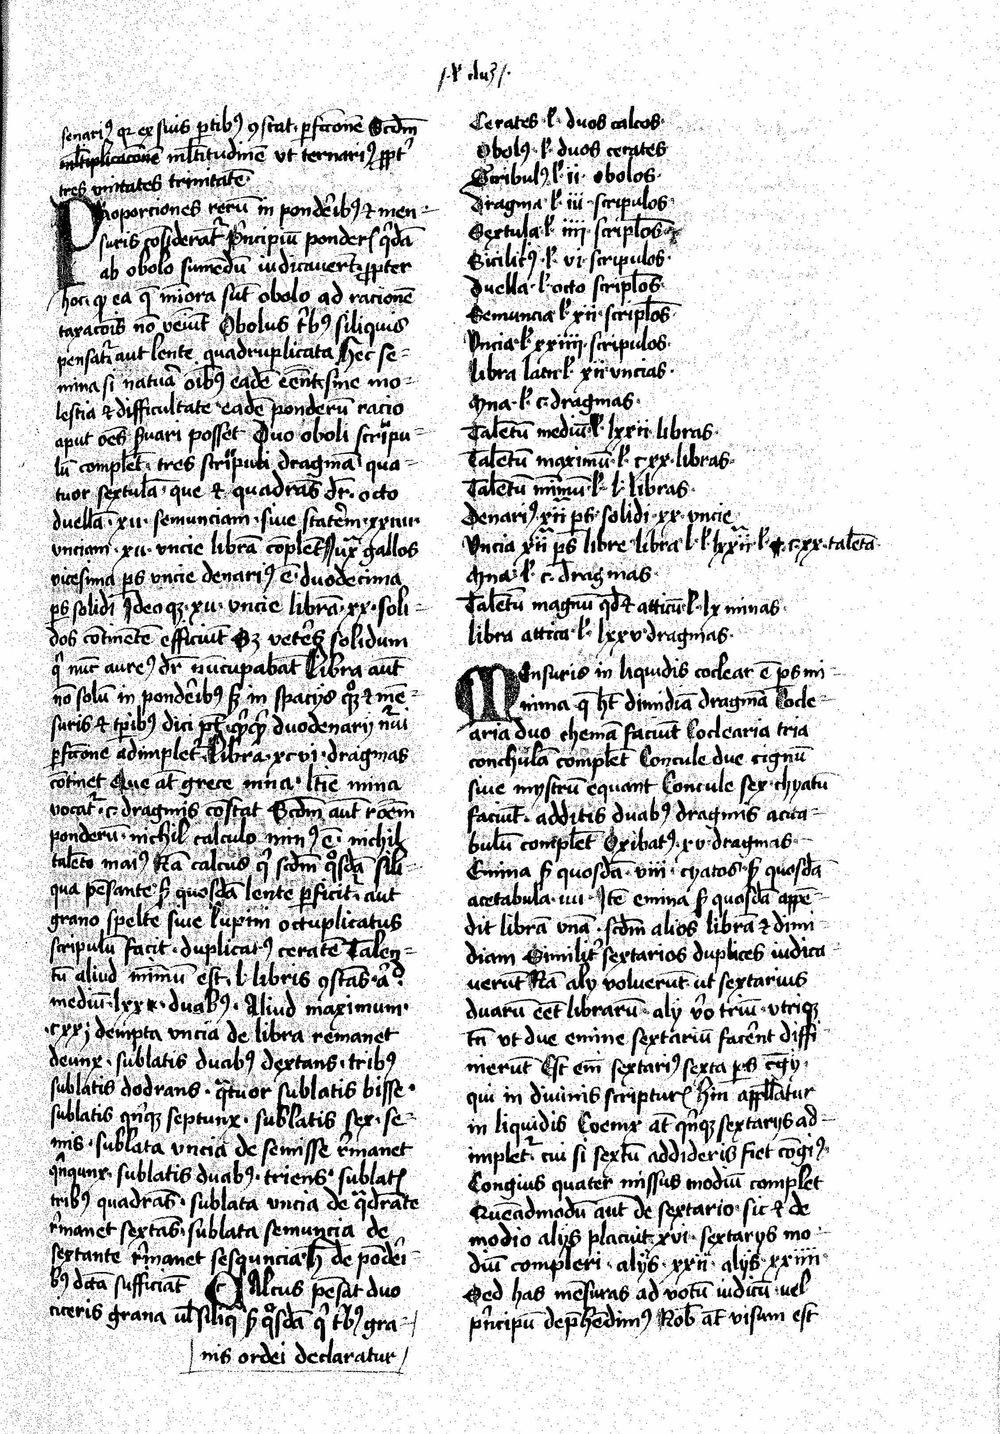 senari9 qr ex suis ptib9 9stat. pfcōnē Scdm
mltiplicacōnē mltitudinē vt ternari9 ppt'
tres vnitates trinitatē
Proporciones rerū in pondērib9 & men-
suris cōsiderat' Principiū ponder' q'dā
ab obolo sumēdū iudicauerēt propter
hoc. q' ea q̄ minora sūt obolo ad racionē
taxacōis nō veniūt Obolus t'b9 siliquis
pensat' aut lente quadruplicata Hec se-
mina si natura oīb9 eadē
lestia & difficultate eadē ponderū racio
aput oēs s'uari posset Duo oboli scripu-
lū complēt. tres scripuli dragmā qua-
tuor sextulā. que & quadrās dr̄. octo
duellā. xii. semunciam. siue staterē. xxiiii.
vnciam. xii. vncie librā cōplent Iuxᵃ gallos
vicesima ps vncie denari9 ē. duodecima
ps solidi Ideoqz. xii. vncie librā. xx. soli-
dos cōtinētē efficiūt Sz vetēs solidum
q' nūc aure9 dr̄ nūcupabāt Libra aūt
nō solū in pondērib9 sz in spacijs &mē-
suris & tpib9 dici pt' duodenarij nūi
pfcōne adimplet' Libra. xcvi. dragmas
cōtinet Que āt grece mna. ltīe mina
vocat'. c. dragmis cōstat Scdm aūt rōem
ponderū. nichil calculo min9 ē. nichil
talēto mai9 Nā calcus q' scdm qᵒsdā sili-
qua pēsante s' quosdā lente pficit' aut
grano spelte siue lupini octuplicatus
scripulū facit. duplicat9 ceratē Talen-
tū aliud minimū est. l. libris 9stās. a'd
mediū. lxx . duab9. Aliud maximum.
.cxxj dempta vncia de libra remanet
deunx. sublatis duab9 dextans. trib9
sublatis dodrans. qᵃtuor sublatis bisse.
sublatis qn'qz septunx. sublatis sex. se-
mis. sublata vncia de semisse r'manet
qn'qunx. sublatis duab9. triens. sublat'
trib9 quadrās. sublata vncia de qᵃdrāte
r'manet sextās. sublata semuncia de
sextante r'manet sesquncia. h' de pōdēi-
b9 dicta sufficiāt Calcus pēsat duo
ciceris grana ul' siliq' s' qᵒsdā q' t'b9 gra-
nis ordei declaratur
Cerates. l'. duos calcos.
Obol9. l'. duos cerates
Scribul9 l'. ii. obolos.
Dragma. l'. iii. scripulos.
Sextula. l'. iiii. scriplōs
Sicilic9. l'. vi. scripulos.
Duella. l'. octo scriplōs.
Semuncia l'. xii. scriplōs.
Vncia. l'. xxiiii. scripulos.
libra latīe l'. xii vncias.
Mna. l'. c. dragmas.
Talentū mediū. l'. lxxii. libras.
Talentū maximū. l'. cxx. libras.
Talentū minimū. l'. l. libras.
Denari9. xii ps. solidi. xx. vncie
Vncia xii ps libre libra l'. l'. lxxii l'. c. xx. talētā.
Mna. l'. c. dragmas.
Talentū magnū qd & atticū. l'. lx minas.
libra attica. l'. lxxv dragmas.
Mensuris in liquidis coclear ē ps mi-
nima. q̄ ht dimidiā dragmā Cocle-
aria duo chemā faciūt Coclearia tria
conchulā complēt Concule due cignū
siue mystrū equant Concule sex. chyatū
faciūt. additis duab9 dragmis aceta-
bulū complēt Oxibat9. xv. dragmas.
Emina s' quosdā. viii. cyatos. s' quosdā
acetabula. iiii. Itē emina s' quosdā appē-
dit librā vnā. scdm alios librā & dimi-
diam Similit' sextarios duplices iudica-
uerūt Nā alij voluerūt ut sextarius
duarū eēt librarū. alij v'o triū. vtriqz
tn̄ vt due emine sextariū facerēt diffi-
nierūt Est eni sextari9 sexta ps cōgij.
qui in diuinis scriptur' hin appllatur
in liquidis Coenix āt qn'qz sextarijs ad-
implet'. cui si sextū addideris fiet cōgi9.
Congius quater missus modiū complet
Queadmodū aūt de sextario. sic & de
modio alijs placuit. xvi. sextarijs mo-
diū compleri. alijs. xxii. alijs. xxiiii.
Sed has mēsuras ad votū iudicū. uel
principū depʰendim9 Nob' āt visum est